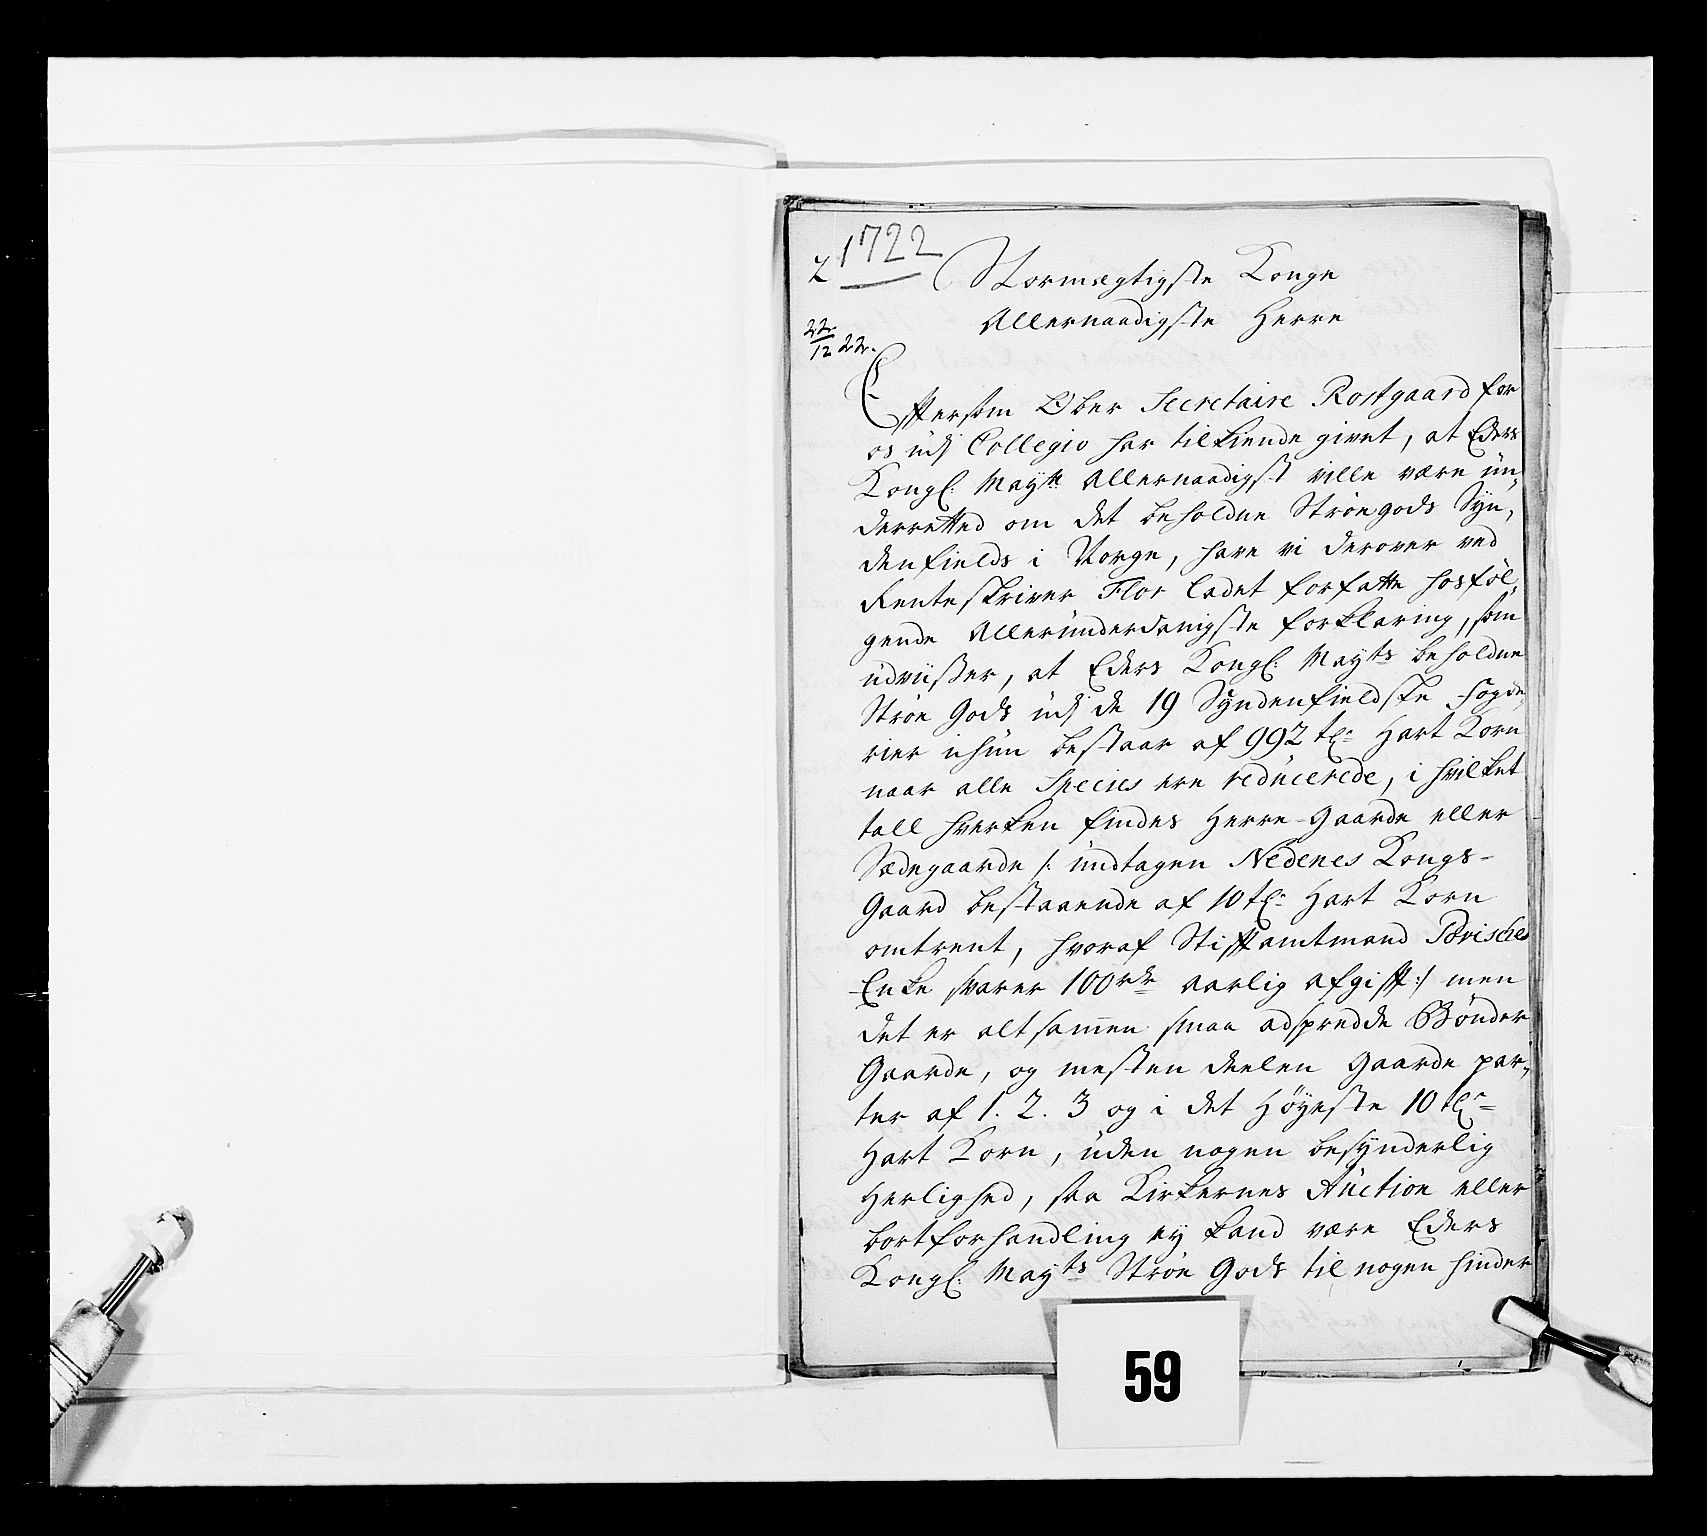 1722
2
22/12 22.
Stormægtigste Konge
Allernaadigste Herre
Efftersom Ober Secretaire Rostgaard for
os udj Collegio har tilkiende givet, at Eders
Kongl: Mayts Allernaadigst ville være ün,
derretted om det beholdne Strøegods Syn,
denfields i Norge, have vi derover ved
Renteskriver Flor ladet forfatte hosføl,
gende Alleründerdanigste forklaring, som
udviisser, at Eders Kongl: Mayts beholdne
Strøe Gods udj de 19 Syndenfieldske Fogde,
rier ichün bestaar af 992 tdr Hart Korn
naar alle Species ere reducerede, i hvilket
tall hverken findes Herre-Gaarde eller
Sædegaarde /: undtagen Nedenes Kongs-
Gaard bestaaende af 10 tdr Hart Korn
omtrent, hvoraf Stifftamtmand Torisches
Enke svarer 100 rdr aarlig afgifft :/ men
det er altsammen smaa adspredde Bønder
Gaarde, og mesten deelen Gaarde par,
ter af 1. 2. 3 og i det Høyeste 10 tdr
Hart Korn, uden nogen besynderlig
Herlighed, saa Kirkernes Auction eller
bortforhandling ey kand være Eders
Kongl: Mayts Strøe Gods til nogen hinder
59